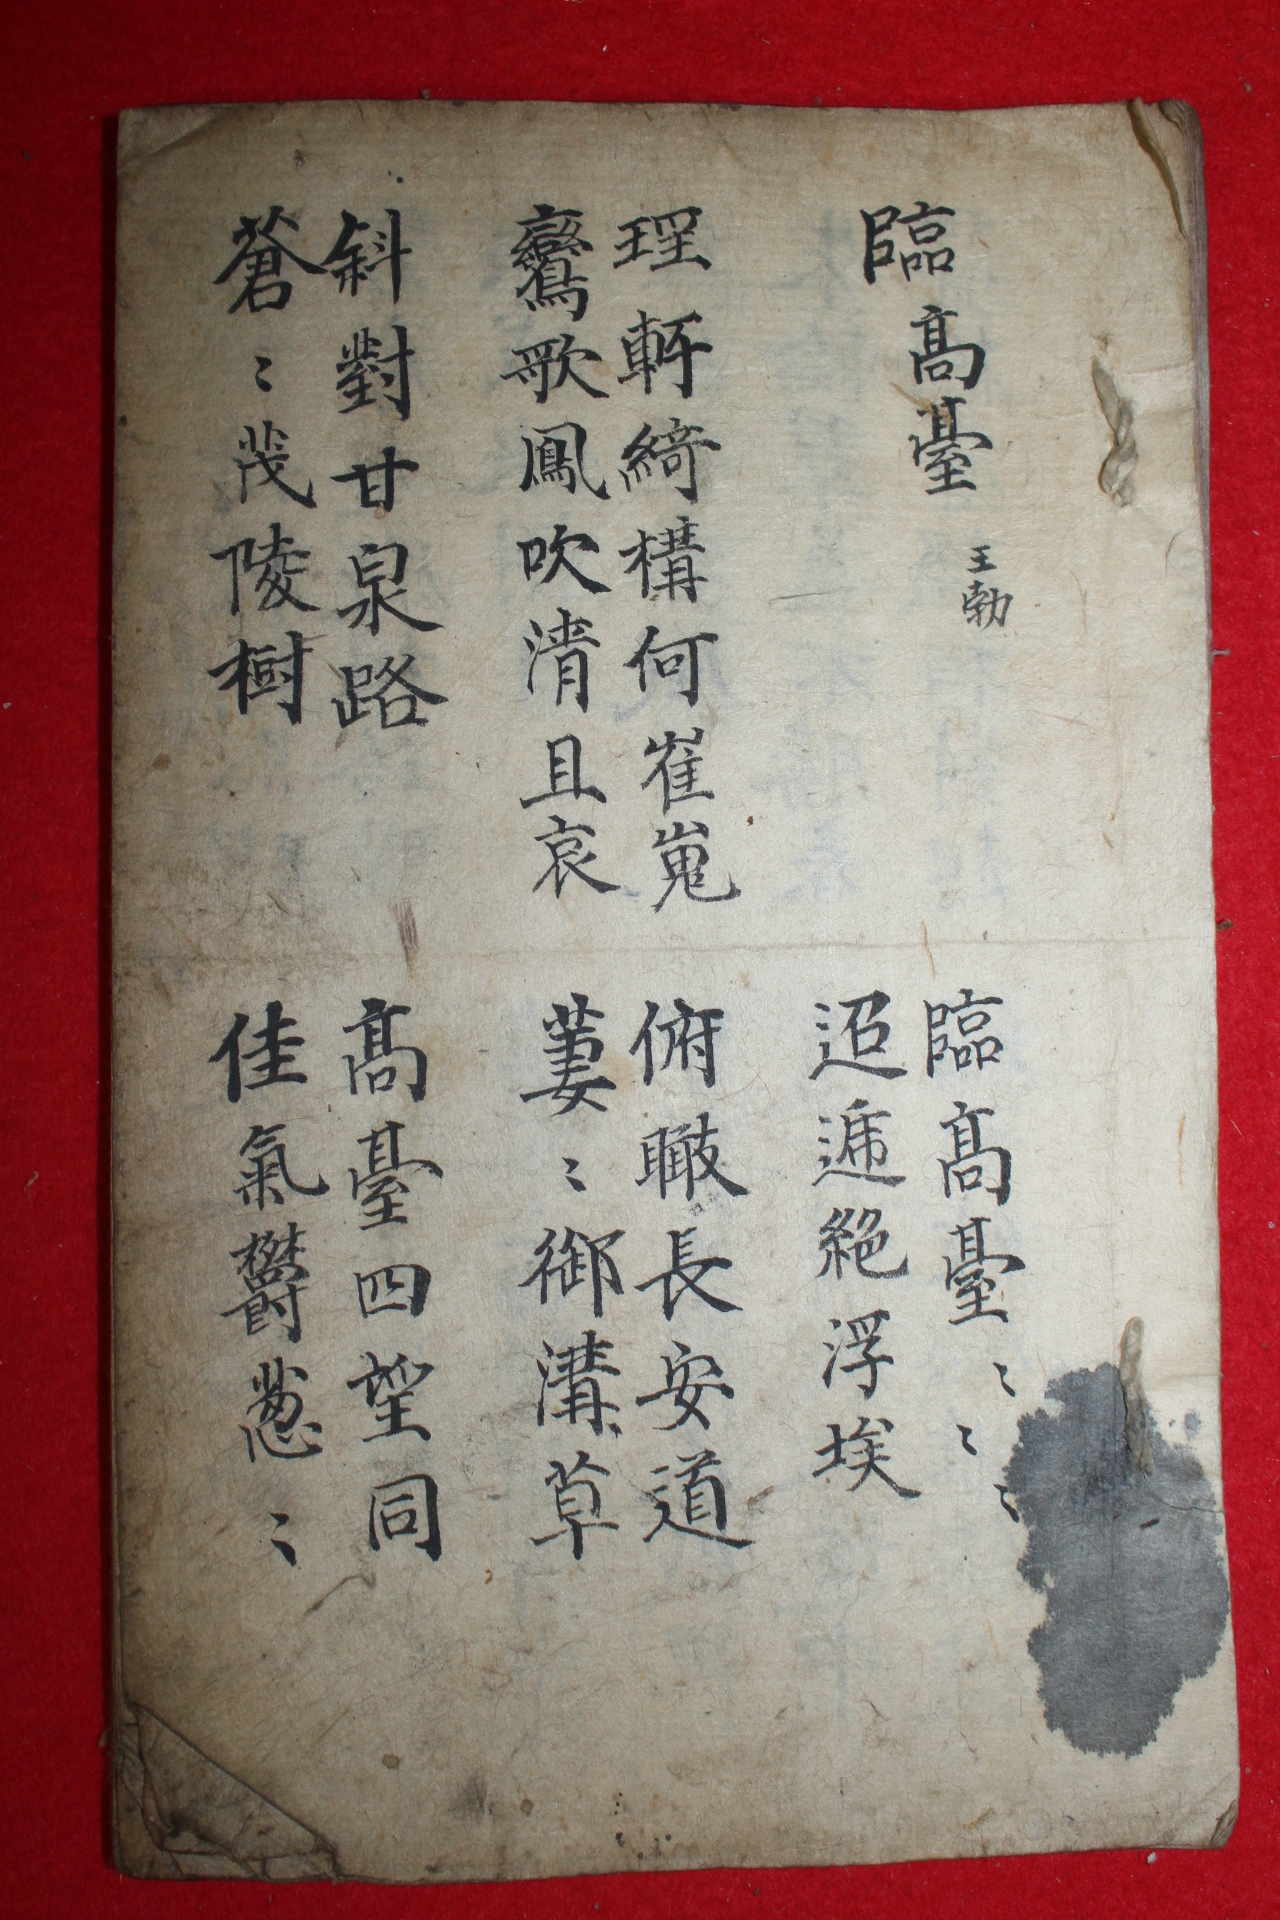 臨高臺 王勃
臨高臺〻〻〻
迢遞絶浮埃
瑤軒綺構何崔嵬
鸞歌鳳吹清且哀
俯瞰長安道
萋〻御溝草
斜對甘泉路
蒼〻茂陵樹
高臺四望同
佳氣鬱葱〻